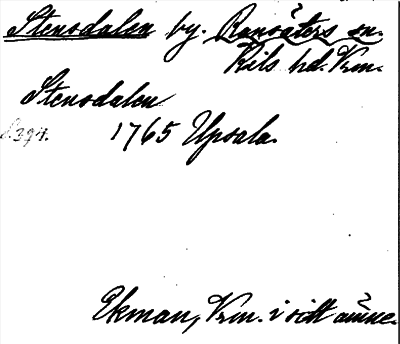 Stensdalen by. Ransäters sn.
Kils hd. Vrm.
Stensdalen
S. 394. 1765 Upsala.
Ekman, Vrm. i sitt ämne.